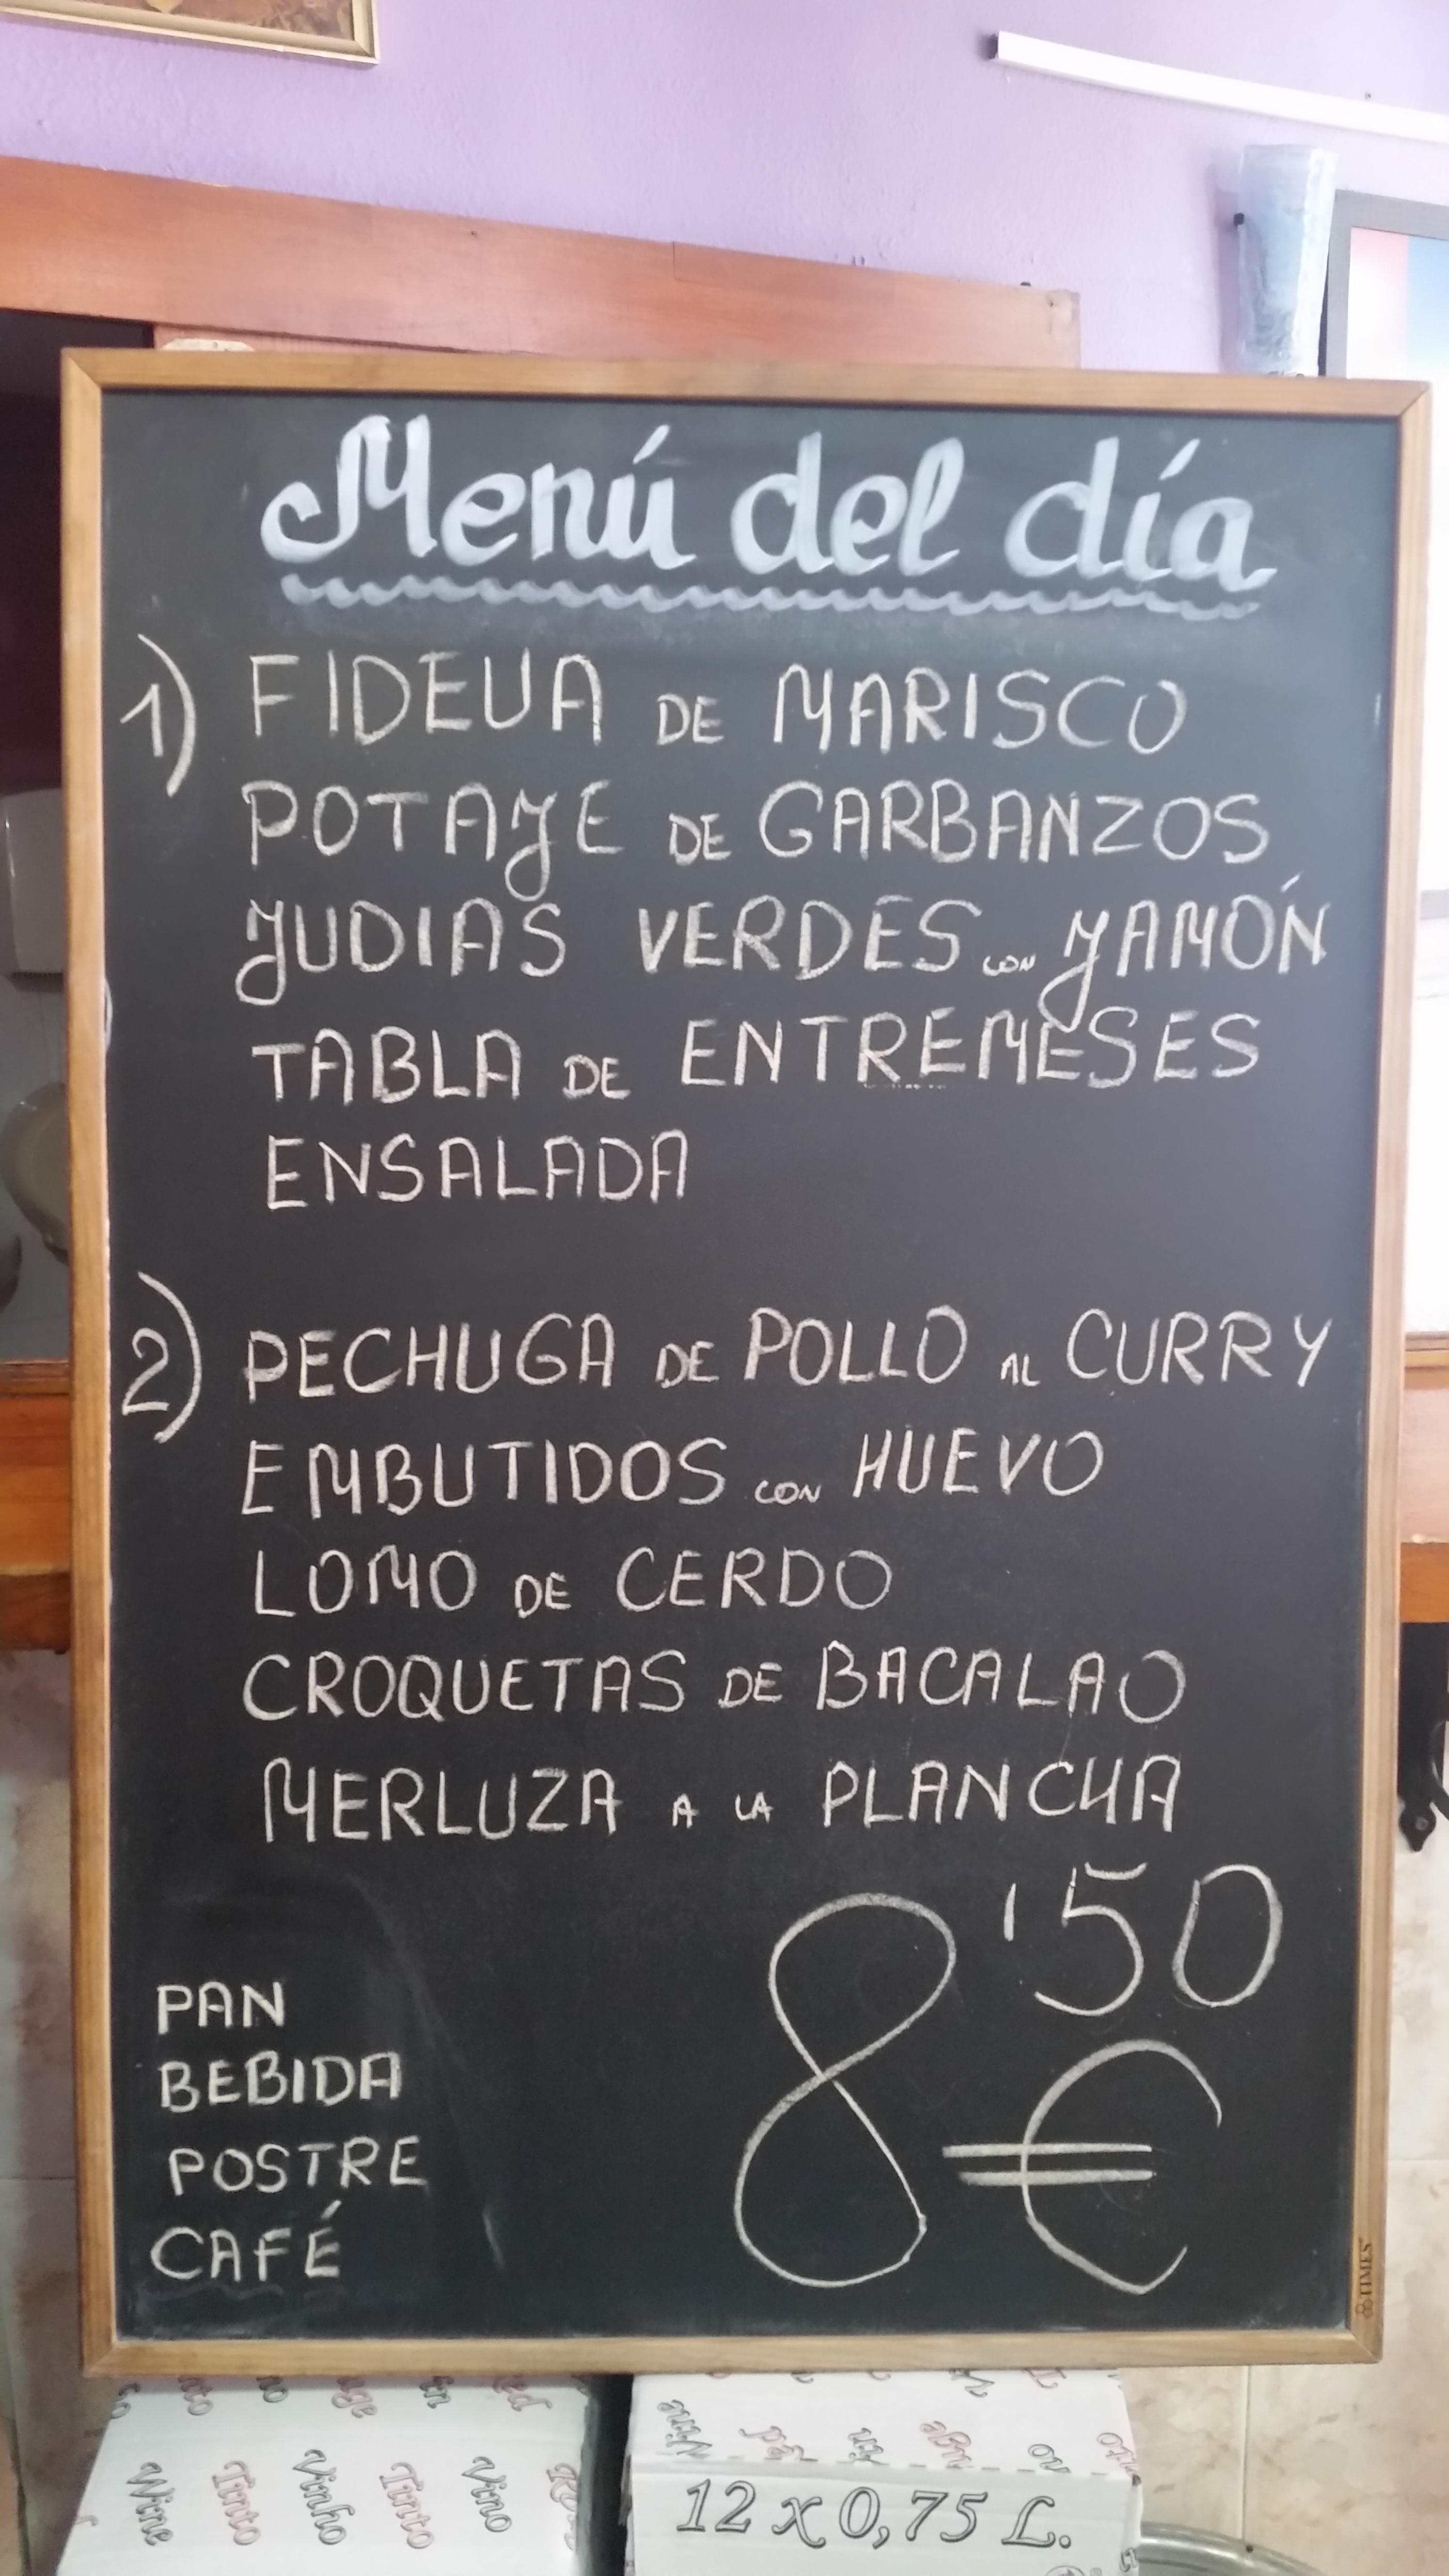 Menú del día
1) FIDEUA DE MARISCO
POTAJE DE GARBANZOS
JUDIAS VERDES CON JAMÓN
TABLA DE ENTREMESES
ENSALADA
2) PECHUGA DE POLLO AL CURRY
EMBUTIDOS CON HUEVO
LOMO DE CERDO
CROQUETAS DE BACALAO
MERLUZA A LA PLANCHA
8'50
€
PAN
BEBIDA
POSTRE
CAFÉ
TIMES
Wine Tinto Vinho Tinto Vino
12 x 0,75 L.